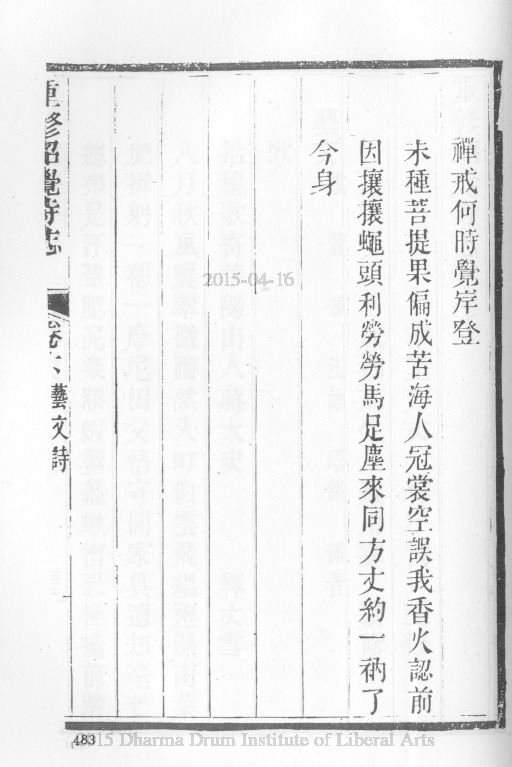 禪戒何時覺岸登
未種菩提果偏成苦海人冠裳空誤我香火認前
因攘攘蠅頭利勞勞馬足塵來同方丈約一衲了
今身
重修昭覺寺志
卷六 藝文 詩
2015-04-16
483
2015 Dharma Drum Institute of Liberal Arts